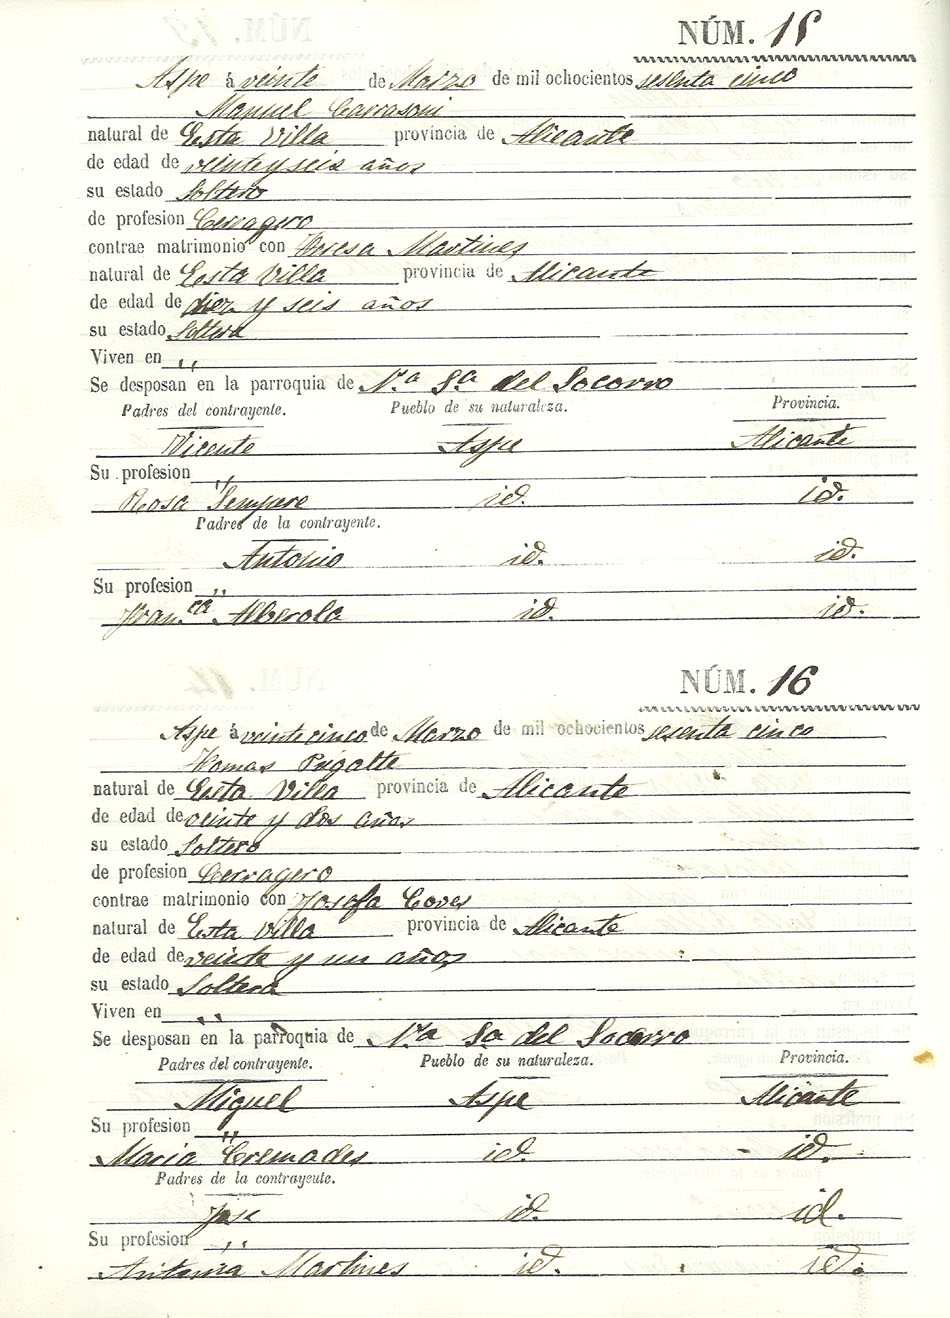 NÚM. 15
Aspe á veinte de Marzo de mil ochocientos sesenta cinco
Manuel
natural de Esta Villa provincia de Alicante
de edad de veinte y seis años
su estado Soltero
de profesion Cerragero
contrae matrimonio con Teresa Martines
natural de Esta Villa provincia de Alicante
de edad de diez y seis años
su estado Soltera
Viven en "
Se desposan en la parroquia de N.ª Sª del Socorro
Padres del contrayente. Pueblo de su naturaleza. Provincia.
Vicente Aspe Alicante
Su profesion "
Rosa Sempere id. id.
Padres de la contrayente.
Antonio id. id.
Su profesion "
Fran.ca Alberola id. id.
NÚM. 16
Aspe á veinte cinco de Marzo de mil ochocientos sesenta cinco
Tomas
natural de Esta Villa provincia de Alicante
de edad de veinte y dos años
su estado Soltero
de profesion Cerragero
contrae matrimonio con Josefa Coves
natural de Esta Villa provincia de Alicante
de edad de veinte y un años
su estado Soltera
Viven en "
Se desposan en la parroquia de N.ª Sª del Socorro
Padres del contrayente. Pueblo de su naturaleza. Provincia.
Miguel Aspe Alicante
Su profesion "
Maria Cremades id. id.
Padres de la contrayente.
Jose id. id.
Su profesion "
Antonia Martines id. id.